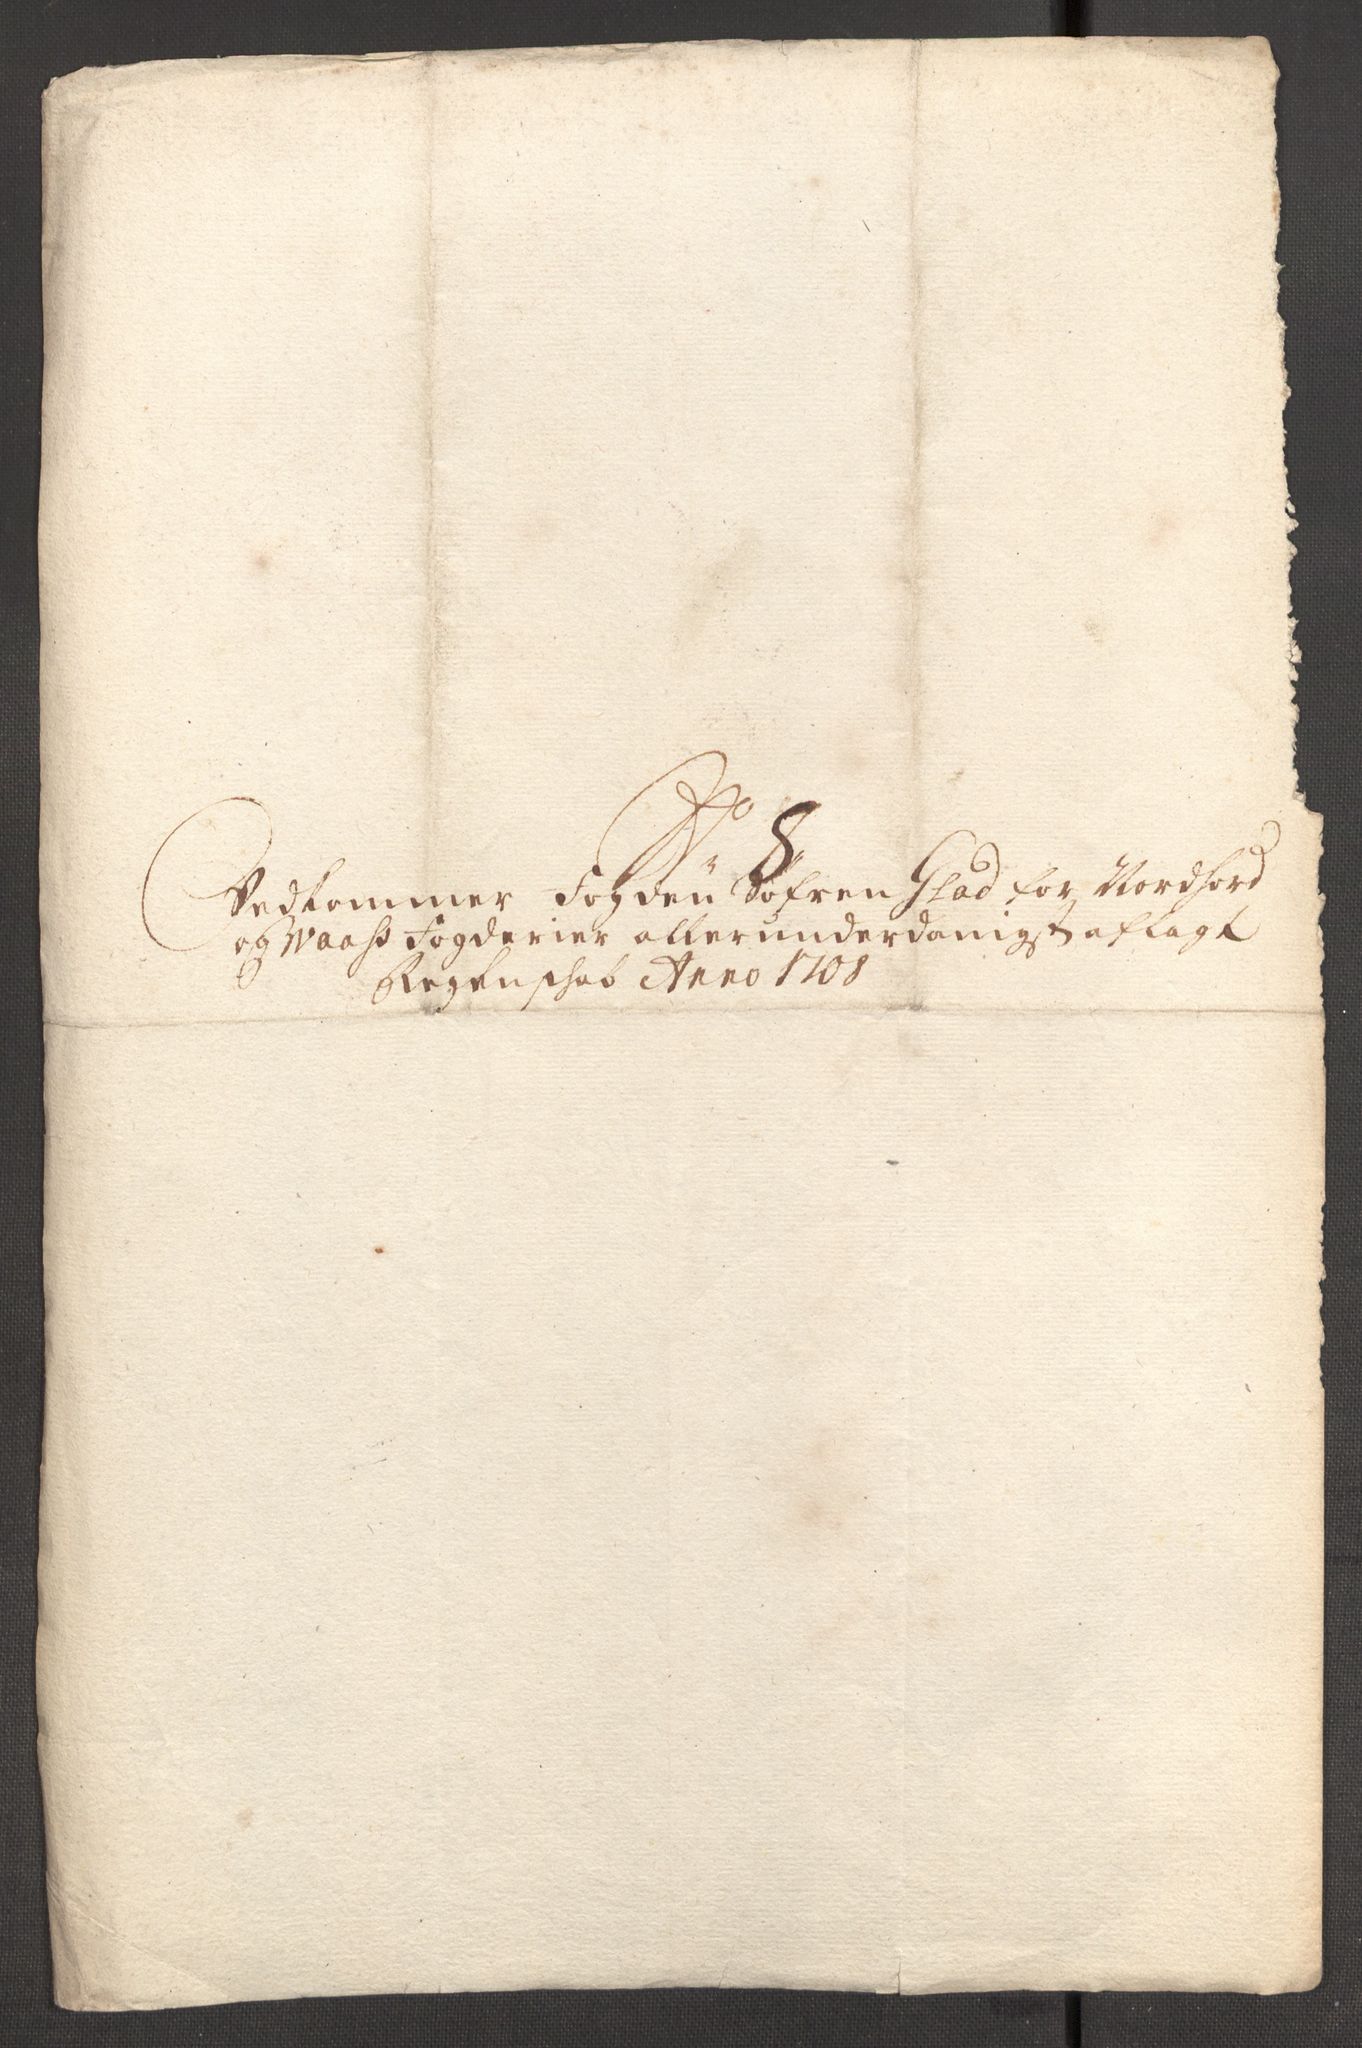 No 8
Vedkommer Fogden Søfren Glad for Nordhord
og Waass Fogderier allerunderdanigst aflagt
Regenschab Anno 1708